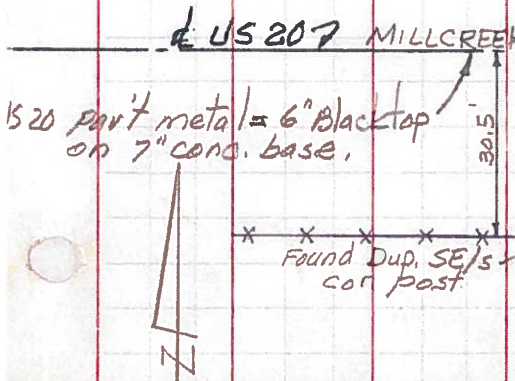 ℄ US 207 MILLCREEK
US 20 pav't metal = 6" Blacktop
on 7" conc. base.
30.5'
Found Dup. SE/s
cor post
N